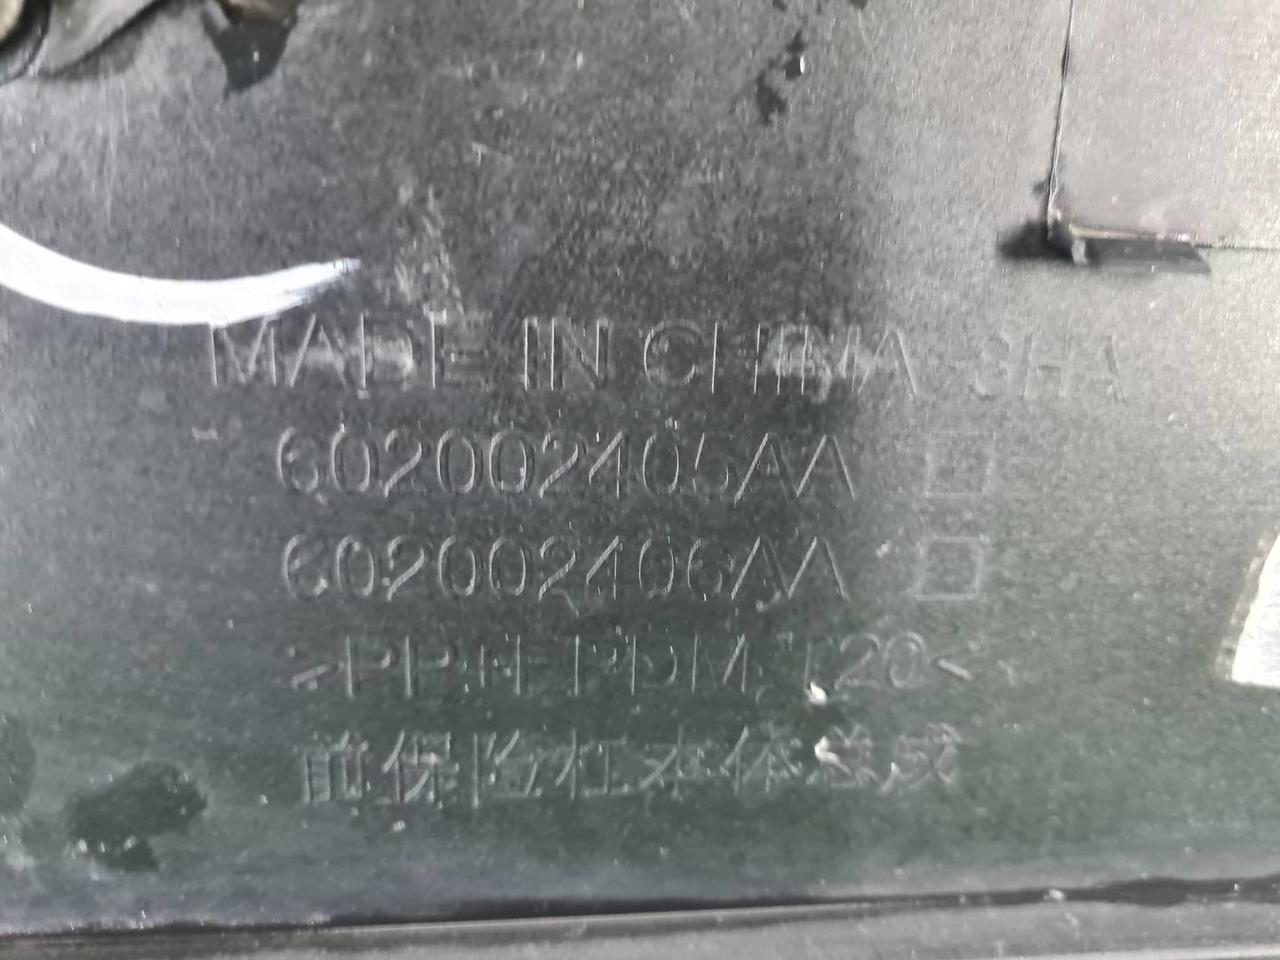 MADE IN CHINA -SHA
602002405AA
602002406AA
>PP+EPDM-T20<
前保险杠本体总成